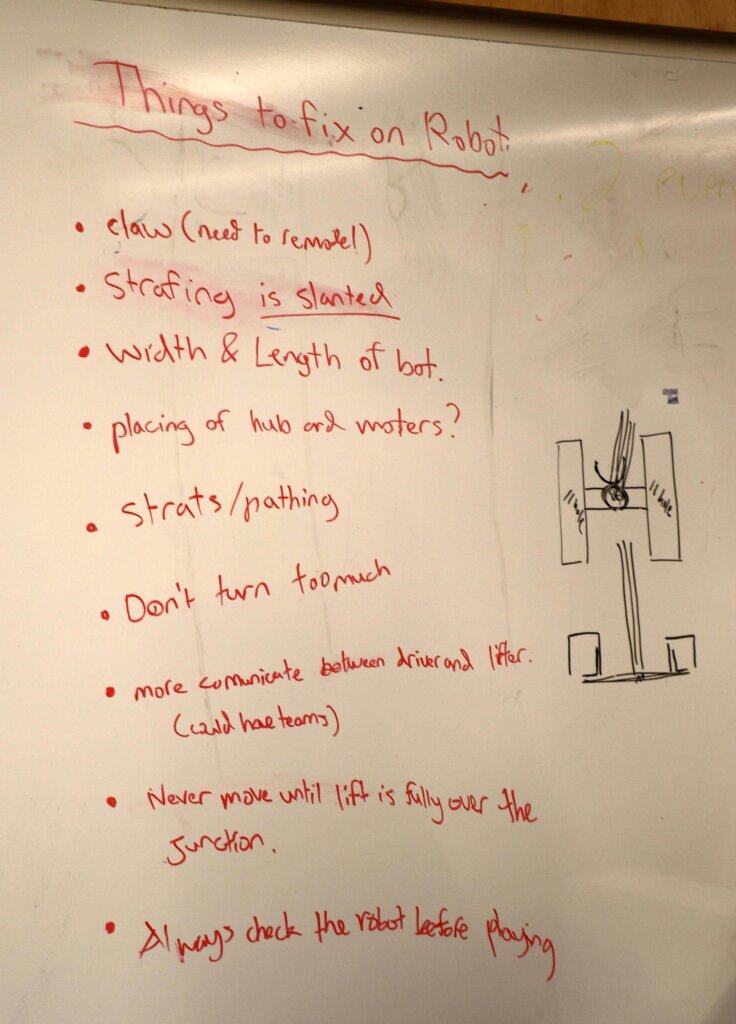 Things to fix on Robot.
• claw (need to remodel)
• Strafing is slanted
• width & Length of bot.
• placing of hub and moters?
• Strats/pathing
• Don't turn too much
• more comunicate between driver and lifter.
(could have teams)
• Never move until lift is fully over the
junction.
• Always check the robot before playing
2 even
11 hole
11 hole